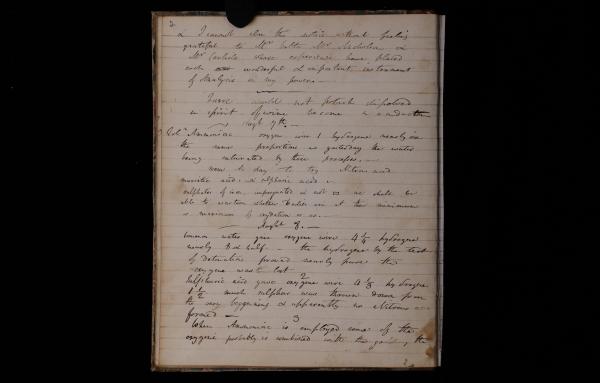 2
& I cannot close the notice without feeling
grateful to Mr Volta Mr Nicholson &
Mr Carlisle whose experience have placed
such wonderful & important instrument
of Analysis in my power.—
I have would not potash dissolved
in spirit of wine become a conductor
Augt 7th.—
Ammoniac oxygen wire 1 hydrogene namely in
the same proportions as yesterday the water
being saturated by these processes.—
mem to day to try Nitrous acid
muriatic acid. & sulphuric acid.
sulphates of iron impregnated in not so we shall be
able to ascertain whether bodies are at the minimum
or maximum of oxydation or no.—
Augst 8.—
Common water gave oxygene wire 4 1/4 hydrogene
namely 8 & half.— the hydrogene by the test
of detonation proved namely pure the
oxygene was lost
2
Sulphuric acid gave oxygene wire 4 1/2 hydrogene
1 1/2 much sulphur was thrown down from
the very beginning & apparently no Nitrous
formed —
3
When Ammoniac is employed some of the
oxygene probably is combined with the gold the